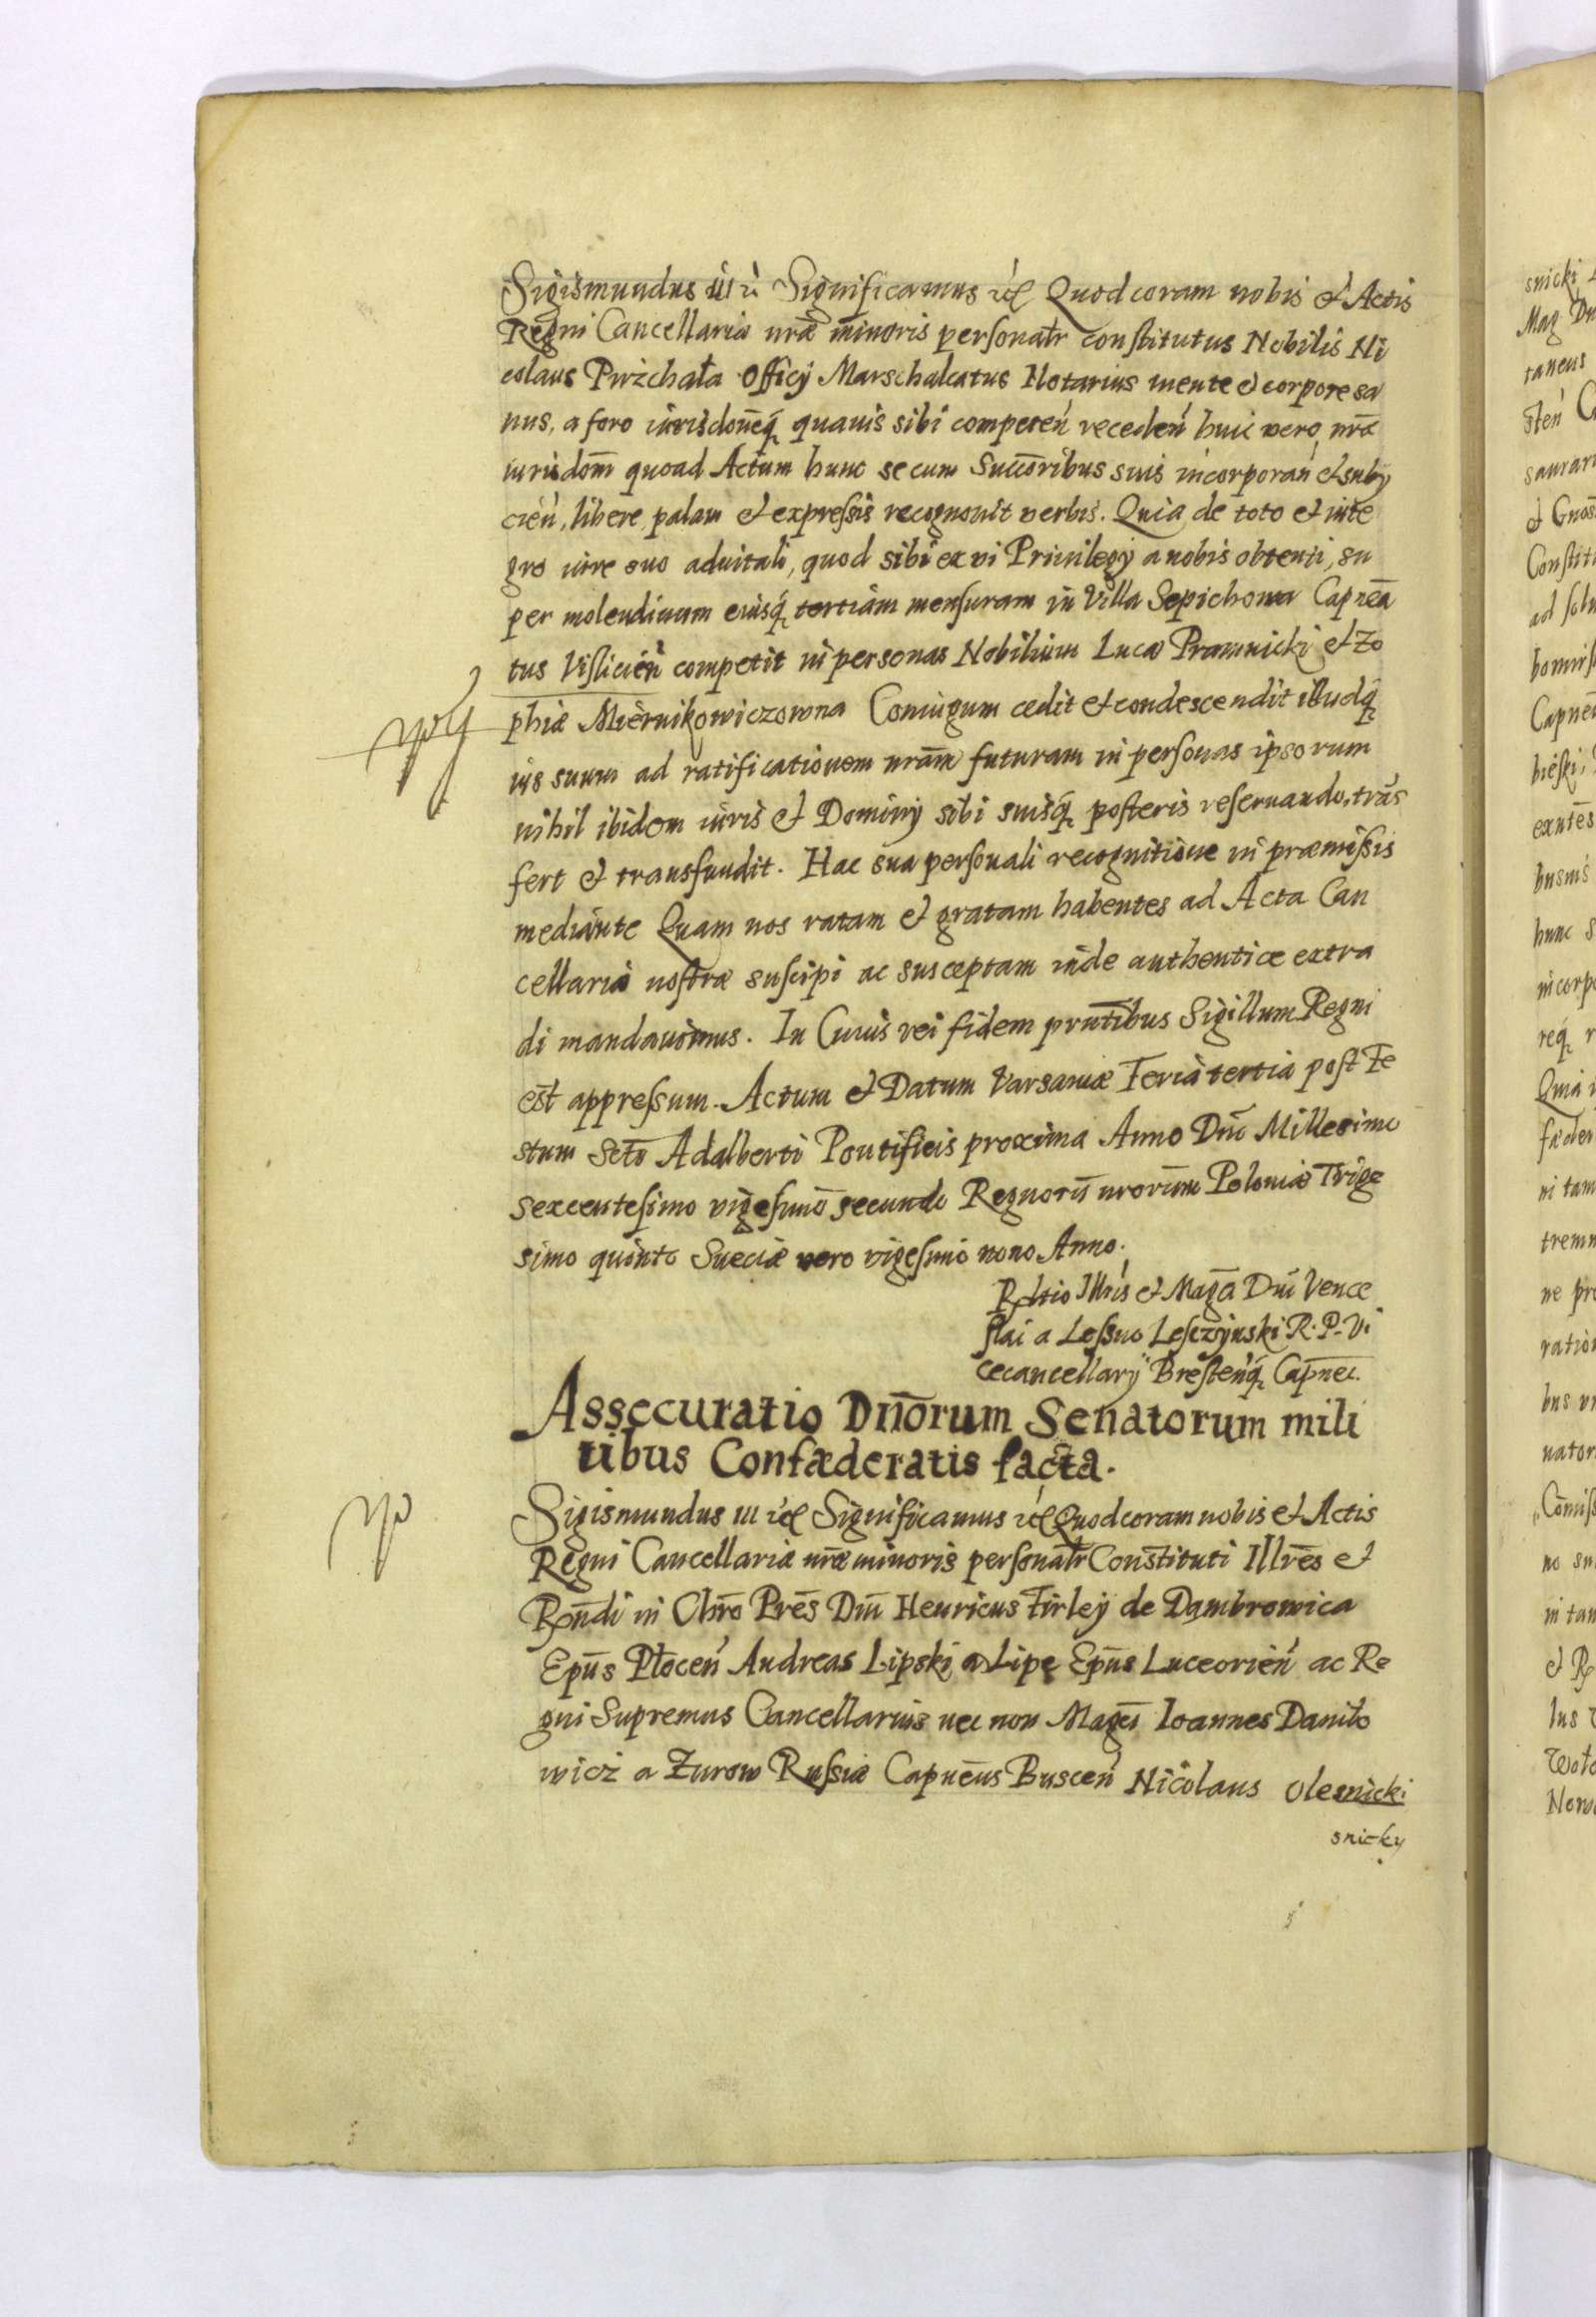 Sigismundus III Significamus Quod coram nobis et Actis
Regni Cancellariæ nræ minoris personalr constitutus Nobilis Ni
colaus Przchała Officij Marschalcatus Notarius mente et corpore sa
nus, a foro iurisdoneq́ quauis sibi competeń receden̄ huic vero nræ
iurisdom̄ quoad Actum hunc se cum Succoribus suis incorporan̄ et suby
cień, libere, palam et expressis recognouit verbis. Quia de toto et inte
gro iure suo aduitali, quod sibi ex vi Priuilegij a nobis obtenti, su
per molendinum eiusq́ tertiam mensuram in Villa Sepichowa Capnea
tus Vislicień competit in personas Nobilium Lucæ Pramnicki et Zo
phiæ Miernikowiczowna Coniugum cedit et condescendit illudq́
ius suum ad ratificationem nram̄ futuram in personas ipsorum
nihil ibidem iuris et Dominij sibi suisq́ posteris reseruando, trās
fert et transfundit. Hac sua personali recognitione in præmissis
mediante Quam nos ratam et gratam habentes ad Acta Can
cellariæ nostræ suscipi ac susceptam inde authentice extra
di mandauimus. In Cuius rei fidem prntibus Sigillum Regni
est appressum. Actum et Datum Varsauiæ Feria tertia post Fe
stum Scti Adalberti Pontificis proxima Anno Dni Millesimo
sexcentesimo vigesimo secundo Regnorū nrorum Poloniæ Trige
simo quinto Sueciæ vero vigesimo nono Anno.
Rltio Illris et Magci Dni Vence
slai a Lessno Lesczynski R. P. Vi
cecancellarij Brestenq́ Capnei.
Assecuratio Dnorum Senatorum mili
tibus Confæderatis facta.
Sigismundus III Significamus Quod coram nobis et Actis
Regni Cancellariæ nræ minoris personalr Constituti Illres et
Rndi in Chro Pres Dni Henricus Firley de Dąmbrowica
Epūs Płocen̄ Andreas Lipski a Lipe Epūs Luceorień ac Re
gni Supremus Cancellarius nec non Magci Ioannes Daniło
wicz a Zurow Russiæ Capneus Buscen̄ Nicolaus Olesnicki
snicky